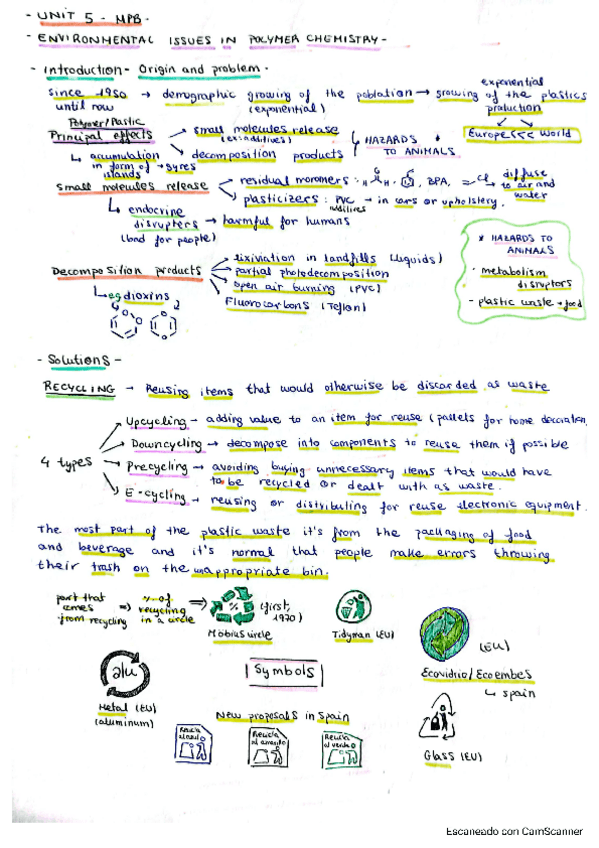 - UNIT 5 - MPB -
- ENVIRONMENTAL ISSUES IN POLYMER CHEMISTRY -
- Introduction - Origin and problem -
since 1950 → demographic growing of the poblation → growing of the plastics
until now
(exponential)
exponential
production
Europe <<< World
Polymer/Plastic
Principal effects
small molecules release
(ex: additives)
decomposition products
HAZARDS *
TO ANIMALS
↳ accumulation
in form of → gyres
islands
small molecules release
residual monomers:
, BPA,
Cl
diffuse
to air and
water
plasticizers: PVC → in cars or upholstery.
additives
↳ endocrine
disrupters → harmful for humans
(bad for people)
* HAZARDS TO
ANIMALS
- metabolism
disruptors
- plastic waste → food
Decomposition products
lixivation in landfills (liquids)
partial photodecomposition
open air burning (PVC)
Fluorocarbons (Teflon)
↳ eg dioxins
- Solutions -
RECYCLING → Reusing items that would otherwise be discarded as waste
4 types
Upcycling → adding value to an item for reuse (pallets for home decoration)
Downcycling → decompose into components to reuse them if possible
Precycling → avoiding buying unnecessary items that would have
to be recycled or dealt with as waste.
E-cycling → reusing or distributing for reuse electronic equipment.
The most part of the plastic waste it's from the packaging of food
and beverage and it's normal that people make errors throwing
their trash on the inappropriate bin.
part that
comes
from recycling
⇒ % of
recycling
in a circle
⇒
%
(first,
1970)
Möbius circle
Tidyman (EU)
(EU)
Ecovidrio / Ecoembes
↳ spain
alu
Metal (EU)
(aluminum)
Symbols
New proposals in Spain
Recicla
al azul
Recicla
al amarillo
Recicla
al verde
Glass (EU)
Escaneado con CamScanner